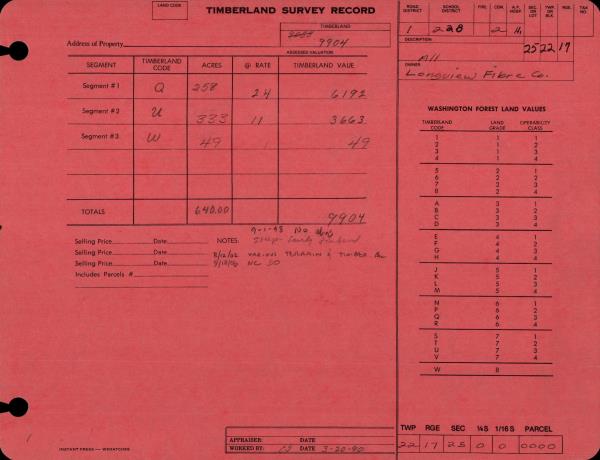 LAND CODE
TIMBERLAND SURVEY RECORD
TIMBERLAND
9904
Address of Property
ASSESSED VALUATION
SEGMENT TIMBERLAND CODE ACRES @ RATE TIMBERLAND VAUE
Segment #1 Q 258 24 6192
Segment #2 U 333 11 3663
Segment #3 W 49 1 49
TOTALS 640.00 9904
Selling Price Date NOTES:
Selling Price Date 8/12/02 VARIOUS TERRAIN & TIMBER
Selling Price Date NC SD
Includes Parcels #
ROAD DISTRICT SCHOOL DISTRICT FIRE CEM. A.P. HOSP. SEC. OR LOT TWP. OR BLK RGE. TAX NO
1 228 2 25 22 17
DESCRIPTION
All
OWNER
Longview Fibre Co.
WASHINGTON FOREST LAND VALUES
TIMBERLAND CODE LAND GRADE OPERABILITY CLASS
1 1 1
2 1 2
3 1 3
4 1 4
5 2 1
6 2 2
7 2 3
8 2 4
A 3 1
B 3 2
C 3 3
D 3 4
E 4 1
F 4 2
G 4 3
H 4 4
J 5 1
K 5 2
L 5 3
M 5 4
N 6 1
P 6 2
Q 6 3
R 6 4
S 7 1
T 7 2
U 7 3
V 7 4
W 8
TWP RGE SEC ¼S 1/16 S PARCEL
22 17 25 0 0 0000
APPRAISER: DATE
WORKED BY: CJ DATE 3-20-90
INSTANT PRESS — WENATCHEE